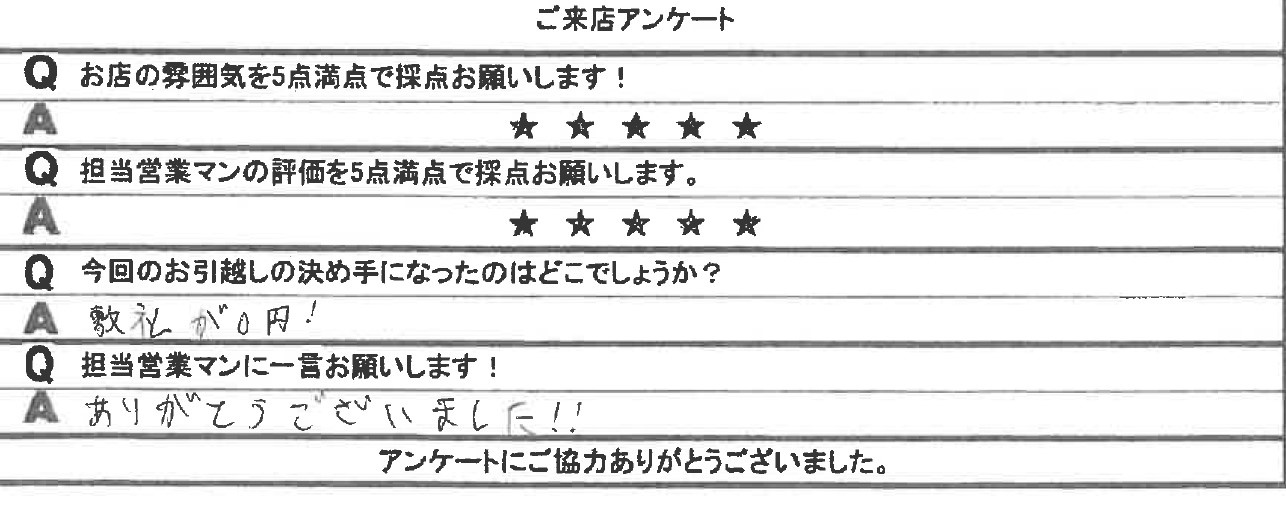 ご来店アンケート
Q お店の雰囲気を5点満点で採点お願いします！
A ★ ★ ★ ★ ★
Q 担当営業マンの評価を5点満点で採点お願いします。
A ★ ★ ★ ★ ★
Q 今回のお引越しの決め手になったのはどこでしょうか？
A 敷礼が0円！
Q 担当営業マンに一言お願いします！
A ありがとうございました!!
アンケートにご協力ありがとうございました。